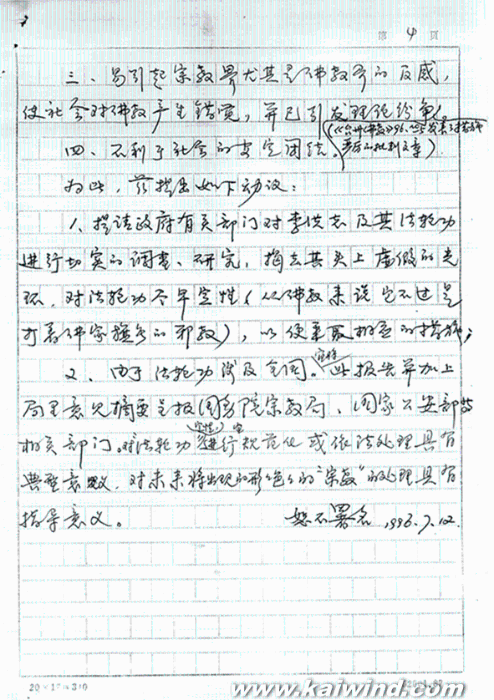 第 4 页
三、易引起宗教界尤其是佛教界的反感，
使社会对佛教产生错觉，并已引发理论纷争。
(《台州佛教》96.
的批判文章)
四、不利于社会的安定团结。
为此，兹提出如下动议：
1、提请政府有关部门对李洪志及其法轮功
进行切实的调查、研究，摘去其头上虚假的光
环，对法轮功尽早定性（从佛教来说它不过是
打着佛家旗号的邪教），以便采取相应的措施；
2、由于法轮功涉及全国。此报告并加上
局里意见摘要呈报国务院宗教局、国家公安部等
相关部门，对法轮功进行规范化或依法处理具有
典型意义，对未来将出现的形形色色的“宗教”的处理具有
指导意义。
恕不署名 1996.7.12.
20×15=300
www.kaiwind.com